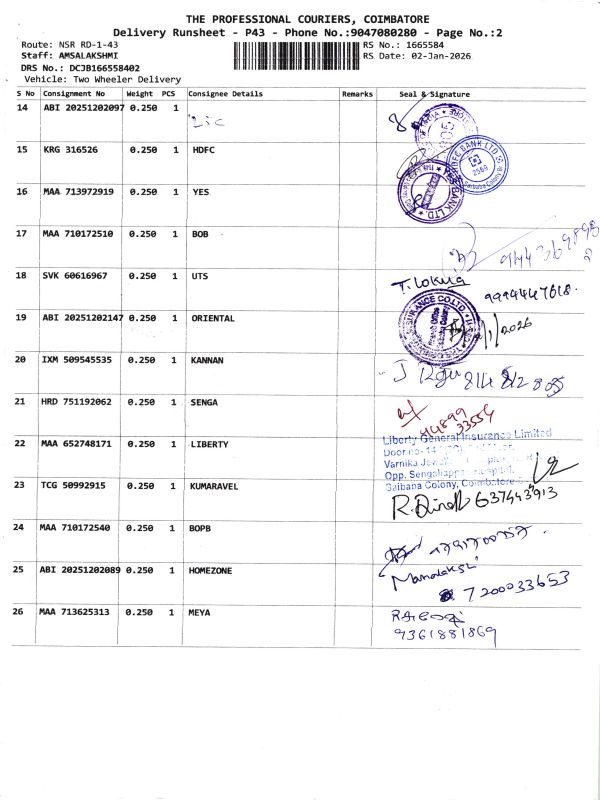 THE PROFESSIONAL COURIERS, COIMBATORE
Delivery Runsheet - P43 - Phone No.:9047080280 - Page No.:2
Route: NSR RD-1-43
RS No.: 1665584
Staff: AMSALAKSHMI
RS Date: 02-Jan-2026
DRS No.: DCJB166558402
Vehicle: Two Wheeler Delivery
S No Consignment No Weight PCS Consignee Details Remarks Seal & Signature
14 ABI 20251202097 0.250 1 Lic
15 KRG 316526 0.250 1 HDFC
HDFC BANK LTD
16 MAA 713972919 0.250 1 YES
BANK LTD
17 MAA 710172510 0.250 1 BOB
18 SVK 60616967 0.250 1 UTS
9994447618.
19 ABI 20251202147 0.250 1 ORIENTAL
INSURANCE CO LTD
/1/2026
20 IXM 509545535 0.250 1 KANNAN
21 HRD 751192062 0.250 1 SENGA
44899
33554
22 MAA 652748171 0.250 1 LIBERTY
Liberty General Insurance Limited
Door no- 14
Varnika
Opp. Sengaliappa Hospital,
Saibana Colony, Coimbatore
23 TCG 50992915 0.250 1 KUMARAVEL
24 MAA 710172540 0.250 1 BOPB
25 ABI 20251202089 0.250 1 HOMEZONE
7200033653
26 MAA 713625313 0.250 1 MEYA
9361881869